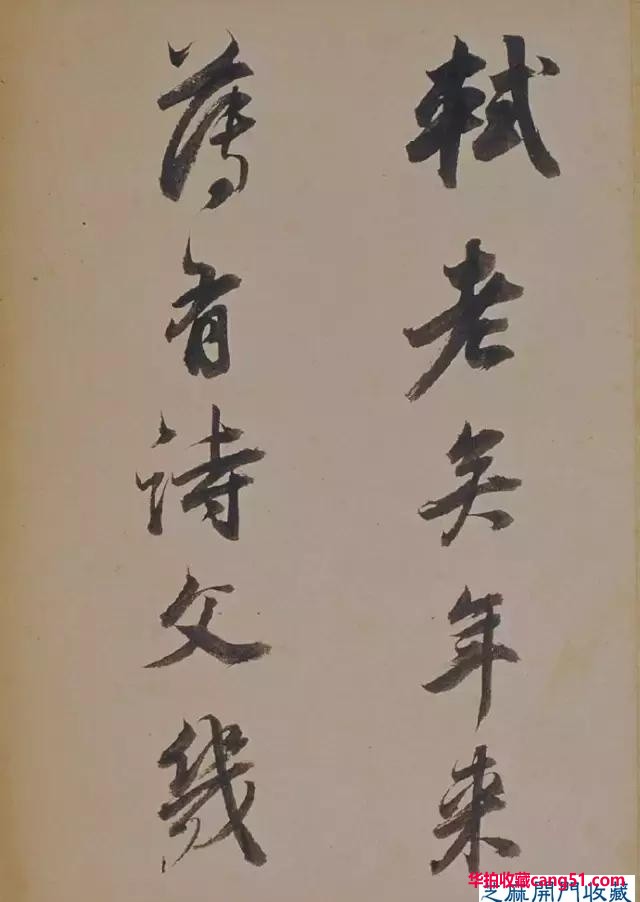 軾老矣年来
薄有詩文幾
华拍收藏cang51.com
芝麻開門收藏